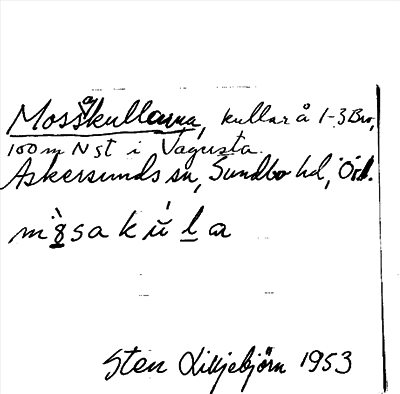 Mossåkullarna, kullar å 1-3 Bro,
100 m N st i Vagusta.
Askersunds sn, Sundbo hd, Örl.
Sten Liljebjörn 1953